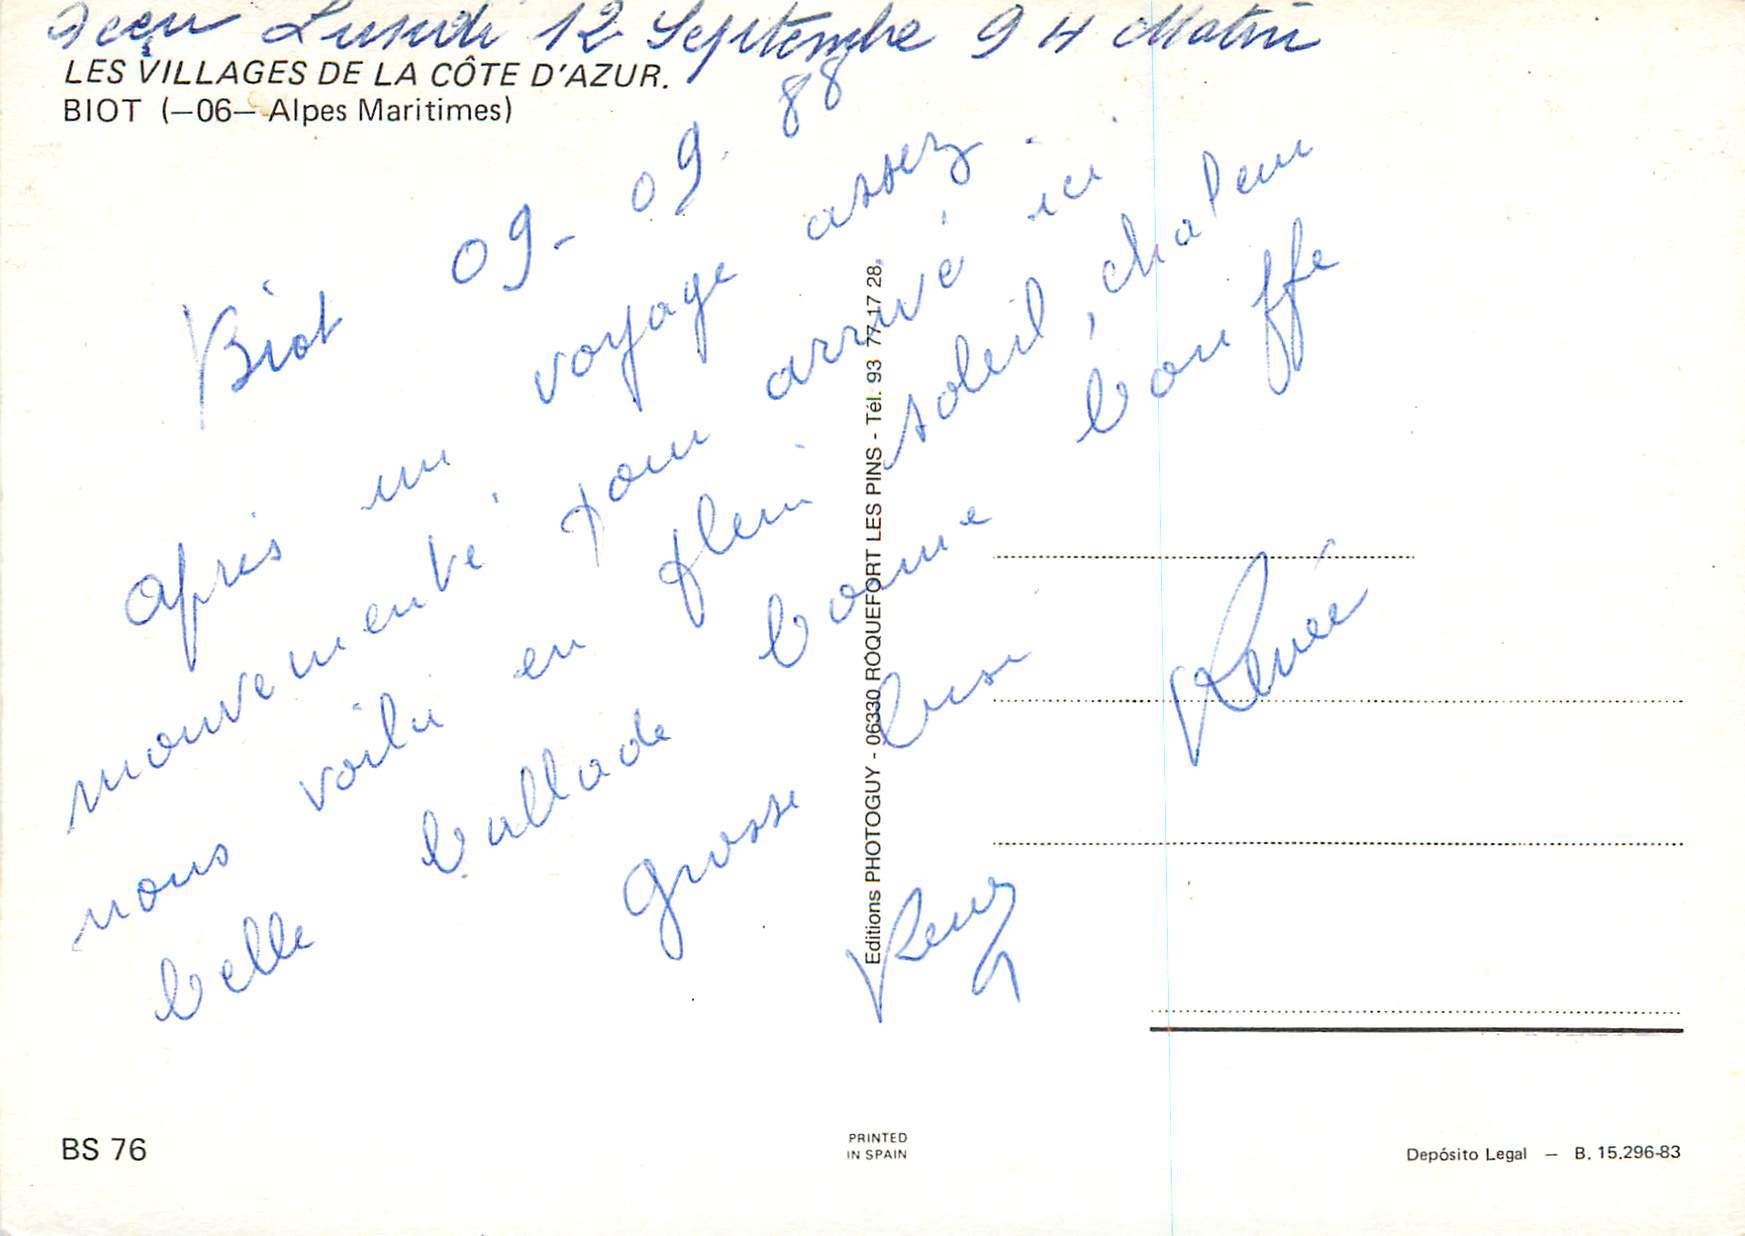 Reçu Lundi 12 Septembre 9 H Matin
LES VILLAGES DE LA CÔTE D'AZUR.
BIOT (—06— Alpes Maritimes)
Biot 09-09.88
Après un voyage assez
mouvementé pour arrivé ici
nous voila en plein soleil, chaleur
belle ballade bonne bouffe
Grosse bise
Renée
Editions PHOTOGUY - 06330 ROQUEFORT LES PINS - Tél. 93 77 17 28.
BS 76
PRINTED
IN SPAIN
Depósito Legal — B. 15.296-83